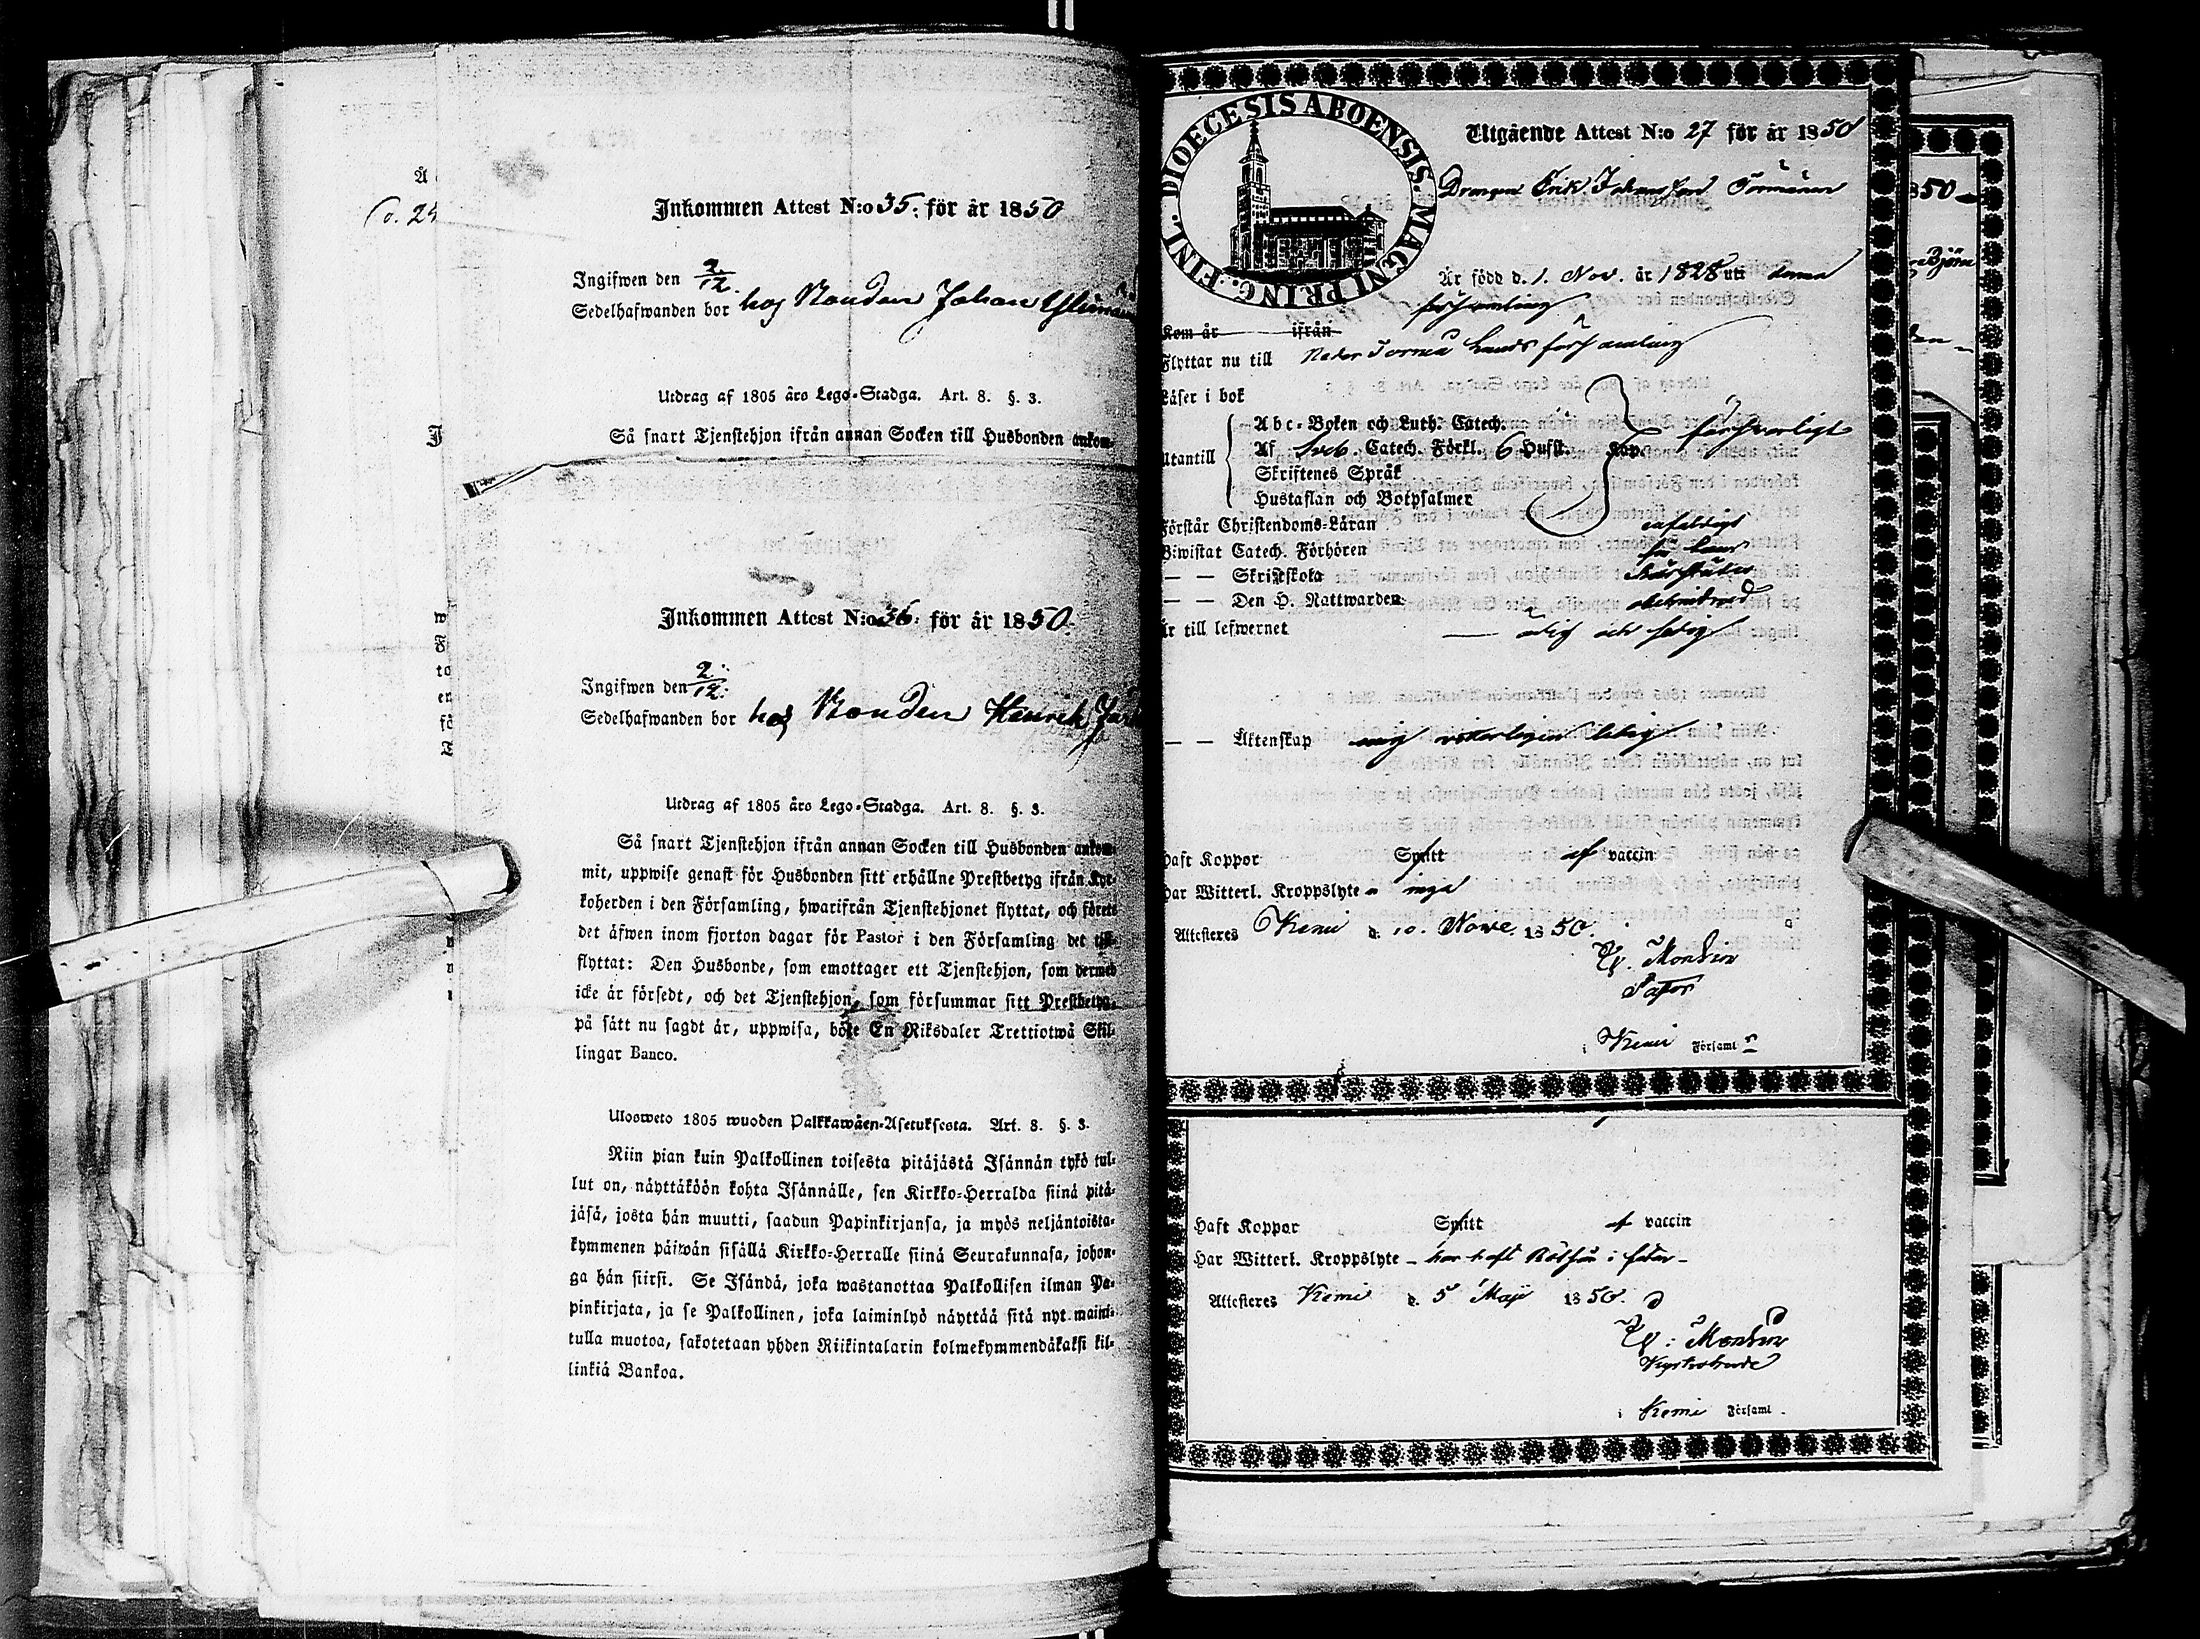 Inkommen Attest N:o 35. för år 1850
Ingifwen den 2/12.
Sedelhafwanden bor hos Bonden Johan
Utdrag af 1805 års Lego-Stadga. Art. 8. §. 3.
Så snart Tjenstehjon ifrån annan Socken till Husbonden ankom-
Inkommen Attest N:o 36. för år 1850.
Ingifwen den 2/12.
Sedelhafwanden bor hos Bonden Henrik
Utdrag af 1805 års Lego-Stadga. Art. 8. §. 3.
Så snart Tjenstehjon ifrån annan Socken till Husbonden ankom-
mit, uppwise genast för Husbonden sitt erhållne Prestbetyg ifrån Kyr-
koherden i den Församling, hwarifrån Tjenstehjonet flyttat, och förete
det äfwen inom fjorton dagar för Pastor i den Församling det till-
flyttat: Den Husbonde, som emottager ett Tjenstehjon, som dermed
icke är försedt, och det Tjenstehjon, som försummar sitt Prestbetyg,
på sätt nu sagdt är, uppwisa, böte En Riksdaler Trettiotwå Skil-
lingar Banco.
Ulosweto 1805 wuoden Palkkawäen-Asetuksesta. Art. 8. §. 3.
Niin pian kuin Palkollinen toisesta pitäjästä Isännän tykö tul-
lut on, näyttäköön kohta Isännälle, sen Kirkko-Herralda siinä pitä-
jäsä, josta hän muutti, saadun Papinkirjansa, ja myös neljäntoista-
kymmenen päiwän sisällä Kirkko-Herralle siinä Seurakunnasa, johon-
ga hän siirsi. Se Isändä, joka wastanottaa Palkollisen ilman Pa-
pinkirjata, ja se Palkollinen, joka laiminlyö näyttää sitä nyt mainit-
tulla muotoa, sakotetaan yhden Riikintalarin kolmekymmendäkaksi kil-
linkiä Bankoa.
FINL. DIOECESIS ABOENSIS. MAGNI PRINC.
Utgående Attest N:o 27 för år 1850
Drengen Erik Johansson Törmänen
Är född d. 1. Nov. år 1828 uti denna
församling
Kom år ifrån
Flyttar nu till Neder Torneå Lands församling
Läser i bok
Abc-Boken och Luth. Catech.
Utantill Af Sveb. Catech. Förkl. 6 Hufst. Kap. försvarligt
Skriftenes Språk
Hustaflan och Botpsalmer
Förstår Christendoms-Läran enfaldigt
Biwistat Catech. Förhören
— — Skriftskola
— — Den H. Nattwarden obehindrad
Är till lefwernet — ärlig och sedig
— — Äktenskap
Haft Koppor Spitt af vaccin
Har Witterl. Kroppslyte - inga
Attesteres Kemi d. 10. Nove. 1850.
Pastor
i Kemi Församl
Haft Koppor Spitt af vaccin
Har Witterl. Kroppslyte - har haft
Attesteres Kemi d. 5 Maji 1850.
i Kemi Församl.
850
Björn